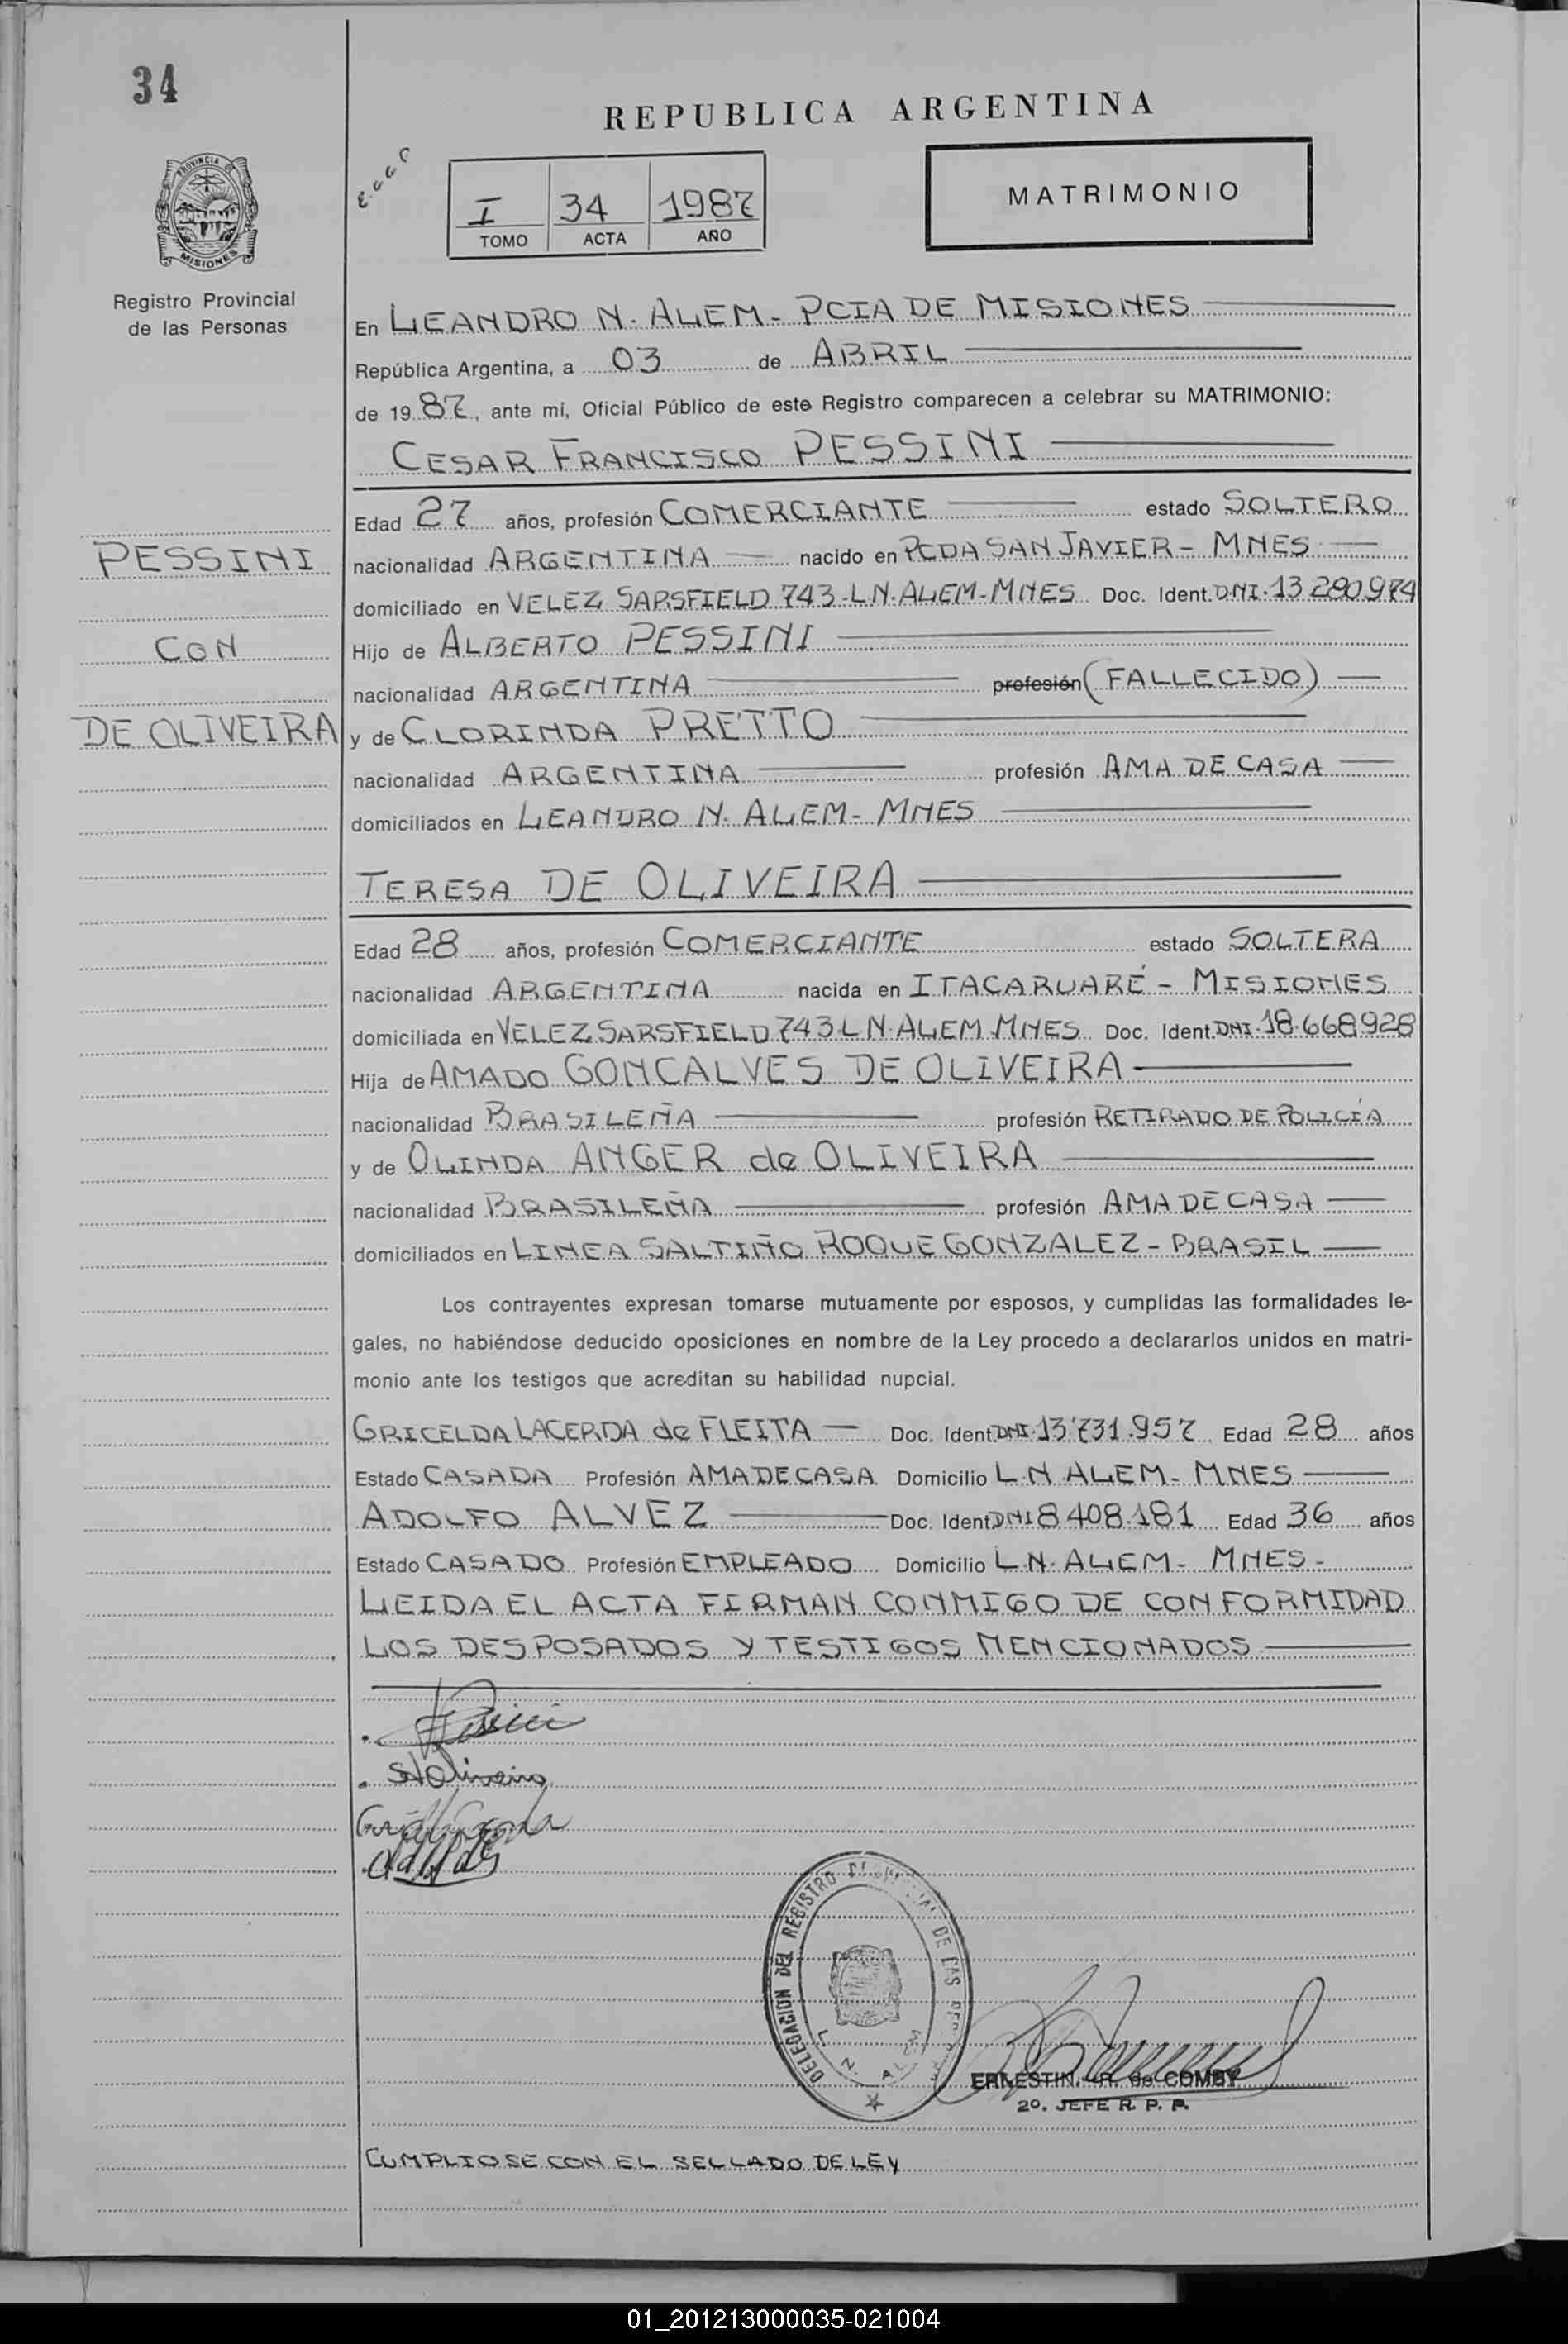 34
REPUBLICA ARGENTINA
PROVINCIA
MISIONES
Registro Provincial
de las Personas
I 34 1987
TOMO ACTA AÑO
MATRIMONIO
En LEANDRO N. ALEM - PCIA DE MISIONES
República Argentina, a 03 de ABRIL
de 1987, ante mí, Oficial Público de este Registro comparecen a celebrar su MATRIMONIO:
CESAR FRANCISCO PESSINI
Edad 27 años, profesión COMERCIANTE estado SOLTERO
PESSINI
nacionalidad ARGENTINA nacido en PCDA SAN JAVIER - MNES
domiciliado en VELEZ SARSFIELD 743-L.N.ALEM-MNES Doc. Ident. DNI.13280974
CON
Hijo de ALBERTO PESSINI
nacionalidad ARGENTINA profesión (FALLECIDO)
DE OLIVEIRA
y de CLORINDA PRETTO
nacionalidad ARGENTINA profesión AMA DE CASA
domiciliados en LEANDRO N. ALEM - MNES
TERESA DE OLIVEIRA
Edad 28 años, profesión COMERCIANTE estado SOLTERA
nacionalidad ARGENTINA nacida en ITACARUARÉ - MISIONES
domiciliada en VELEZ SARSFIELD 743-L.N.ALEM-MNES Doc. Ident. DNI.18.668928
Hija de AMADO GONCALVES DE OLIVEIRA
nacionalidad BRASILEÑA profesión RETIRADO DE POLICÍA
y de OLINDA ANGER de OLIVEIRA
nacionalidad BRASILEÑA profesión AMA DE CASA
domiciliados en LINEA SALTIÑO ROQUE GONZALEZ - BRASIL
Los contrayentes expresan tomarse mutuamente por esposos, y cumplidas las formalidades le-
gales, no habiéndose deducido oposiciones en nombre de la Ley procedo a declararlos unidos en matri-
monio ante los testigos que acreditan su habilidad nupcial.
GRICELDA LACERDA de FLEITA Doc. Ident DNI.13731.957 Edad 28 años
Estado CASADA Profesión AMA DE CASA Domicilio L.N ALEM - MNES
ADOLFO ALVEZ Doc. Ident DNI 8408.181 Edad 36 años
Estado CASADO Profesión EMPLEADO Domicilio L.N. ALEM - MNES -
LEIDA EL ACTA FIRMAN CONMIGO DE CONFORMIDAD
LOS DESPOSADOS Y TESTIGOS MENCIONADOS
DELEGACION DEL REGISTRO DE LAS
L. N. ALEM
de COMBY
2º. JEFE R. P. P.
CUMPLIOSE CON EL SELLADO DE LEY
01_201213000035-021004